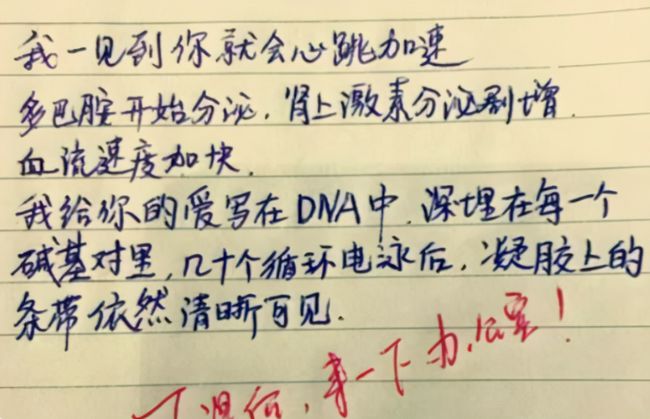 我一见到你就会心跳加速
多巴胺开始分泌，肾上激素分泌剧增.
血流速度加快.
我给你的爱写在DNA中，深埋在每一个
碱基对里，几十个循环电泳后，凝胶上的
条带依然清晰可见.
来一下办公室！